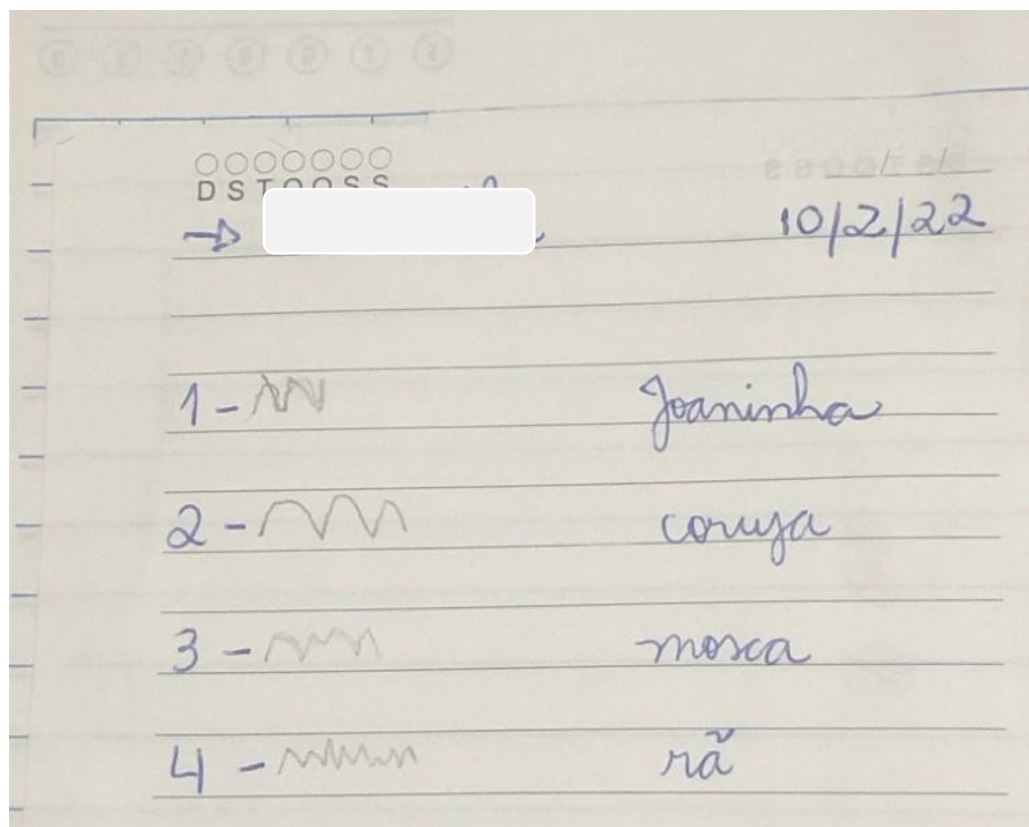 D S T Q Q S S
→ 10/2/22
1 - Joaninha
2 - coruja
3 - mosca
4 - rã